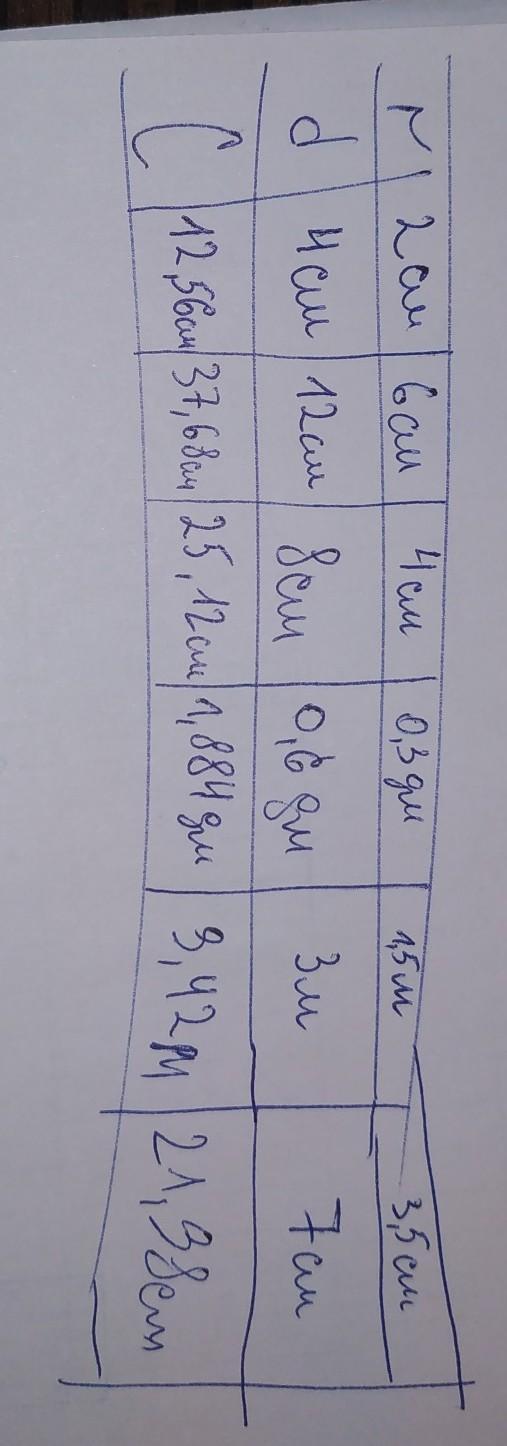 r 2см 6см 4см 0,3дм 1,5м 3,5см
d 4см 12см 8см 0,6дм 3м 7см
C 12,56см 37,68см 25,12см 1,884дм 9,42м 21,98см